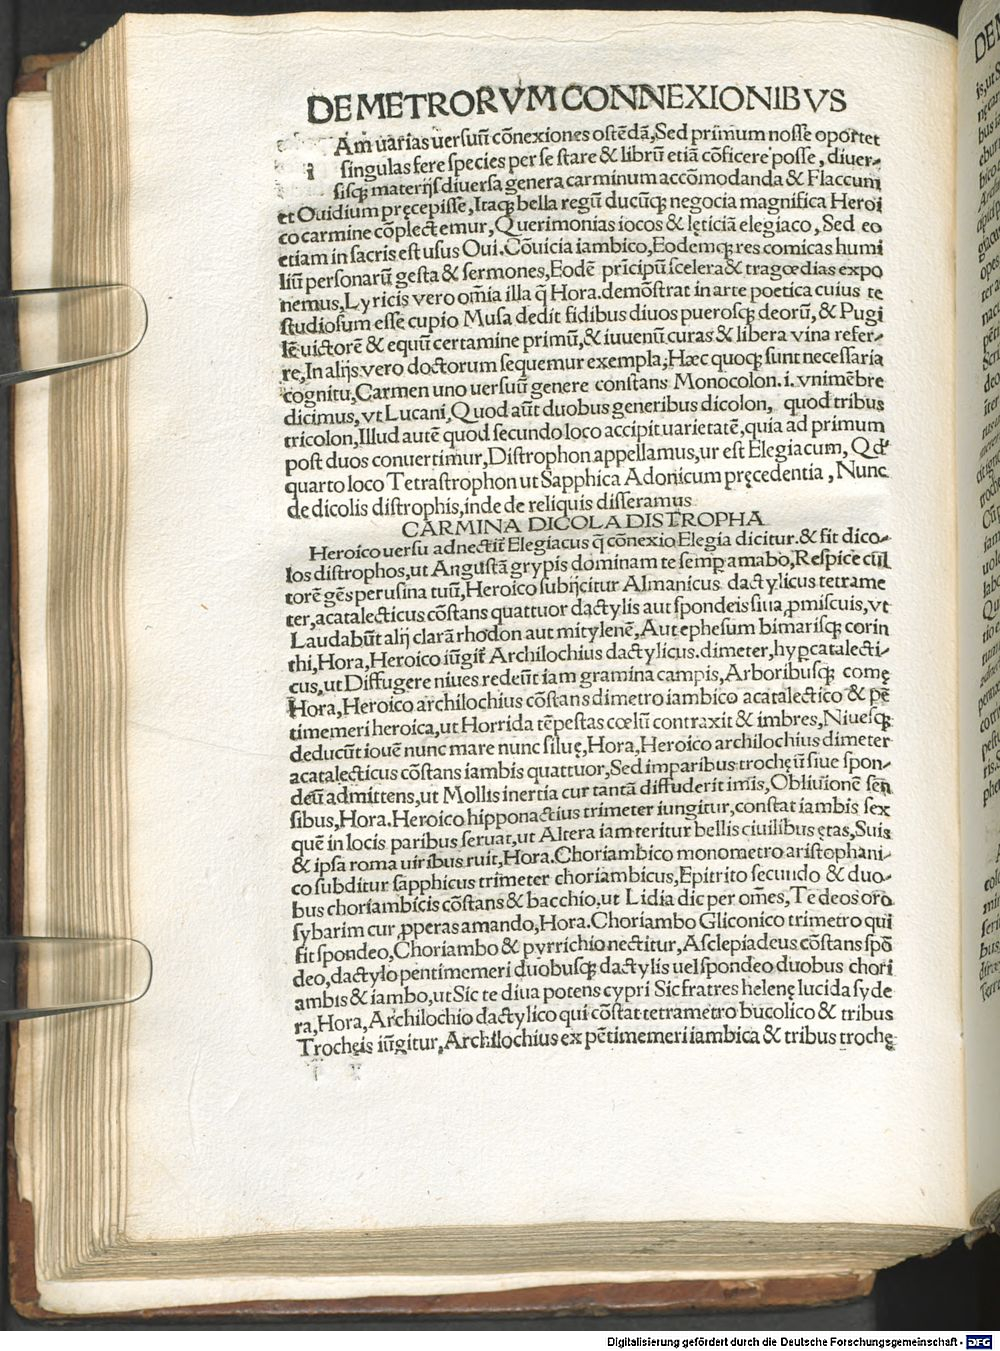 DE METRORVM CONNEXIONIBVS
i Am uarias uersuū cōnexiones ostēdā, Sed primum nosse oportet
singulas fere species per se stare & librū etiā cōficere posse, diuer-
sisqꝫ materijs diuersa genera carminum accōmodanda & Flaccum
et Ouidium pręcepisse, Itaqꝫ bella regū ducūqꝫ negocia magnifica Heroi
co carmine cōplectemur, Querimonias iocos & lęticiā elegiaco, Sed eo
etiam in sacris est usus Oui. Cōuicia iambico, Eodemqꝫ res comicas humi
liū personarū gesta & sermones, Eodē prīcipū scelera & tragœdias expo
nemus, Lyricis vero om̄ia illa q̄ Hora. demōstrat in arte poetica cuius te
studiosum esse cupio Musa dedit fidibus diuos puerosqꝫ deorū, & Pugi
lē uictorē & equū certamine primū, & iuuenū curas & libera vina refer-
re, In alijs vero doctorum sequemur exempla, Hæc quoqꝫ sunt necessaria
cognitu, Carmen uno uersuū genere constans Monocolon. i. vnimēbre
dicimus, vt Lucani, Quod aūt duobus generibus dicolon, quod tribus
tricolon, Illud autē quod secundo loco accipit uarietatē, quia ad primum
post duos conuertimur, Distrophon appellamus, ur est Elegiacum, Qđ
quarto loco Tetrastrophon ut Sapphica Adonicum pręcedentia, Nunc
de dicolis distrophis, inde de reliquis disseramus
CARMINA DICOLA DISTROPHA
Heroico uersu adnectit̄ Elegiacus q̄ cōnexio Elegia dicitur. & fit dico-
los distrophos, ut Angustā grypis dominam te semꝑ amabo, Respice cūl
torē gēs perusina tuū, Heroico subijcitur Almanicus dactylicus tetrame
ter, acatalecticus cōstans quattuor dactylis aut spondeis siua ꝓmiscuis, vt
Laudabūt alij clarā rhodon aut mitylenē, Aut ephesum bimarisqꝫ corin
thi, Hora, Heroico iūgit̄ Archilochius dactylicus. dimeter, hyꝑcatalecti-
cus, ut Diffugere niues redeūt iam gramina campis, Arboribusqꝫ comę
Hora, Heroico archilochius cōstans dimetro iambico acatalectico & pē
timemeri heroica, ut Horrida tēpestas cœlū contraxit & imbres, Niuesqꝫ
deducūt iouē nunc mare nunc siluę, Hora, Heroico archilochius dimeter
acatalecticus cōstans iambis quattuor, Sed imparibus trochęū siue spon-
deū admittens, ut Mollis inertia cur tantā diffuderit imis, Obliuionē sen
sibus, Hora. Heroico hipponactius trimeter iungitur, constat iambis sex
quē in locis paribus seruat, ut Altera iam teritur bellis ciuilibus ętas, Suis
& ipsa roma uiribus ruit, Hora. Choriambico monometro aristophani-
co subditur sapphicus trimeter choriambicus, Epitrito secundo & duo-
bus choriambicis cōstans & bacchio, ut Lidia dic per om̄es, Te deos oro
sybarim cur ꝓperas amando, Hora. Choriambo Gliconico trimetro qui
fit spondeo, Choriambo & pyrrichio nectitur, Asclepiadeus cōstans spō
deo, dactylo pentimemeri duobusqꝫ dactylis uel spondeo duobus chori
ambis & iambo, ut Sic te diua potens cypri Sic fratres helenę lucida syde
ra, Hora, Archilochio dactylico qui cōstat tetrametro bucolico & tribus
Trochęis iūgitur, Archilochius ex pētimemeri iambica & tribus trochę
Digitalisierung gefördert durch die Deutsche Forschungsgemeinschaft - DFG